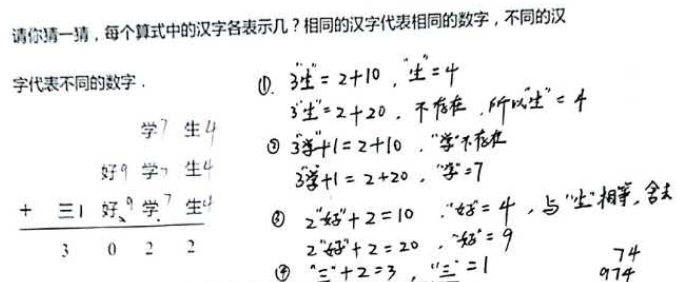 请你猜一猜，每个算式中的汉字各表示几？相同的汉字代表相同的数字，不同的汉
字代表不同的数字．
学7 生4
好9 学7 生4
+ 三1 好9 学7 生4
3 0 2 2
①. 3"生"=2+10，"生"=4
3"生"=2+20．不存在，所以"生"=4
② 3"学"+1=2+10．"学"不存在
3"学"+1=2+20，"学"=7
③ 2"好"+2=10 ."好"=4，与"生"相等，舍去
2"好"+2=20 ，"好"=9
④ "三"+2=3，"三"=1
74
974